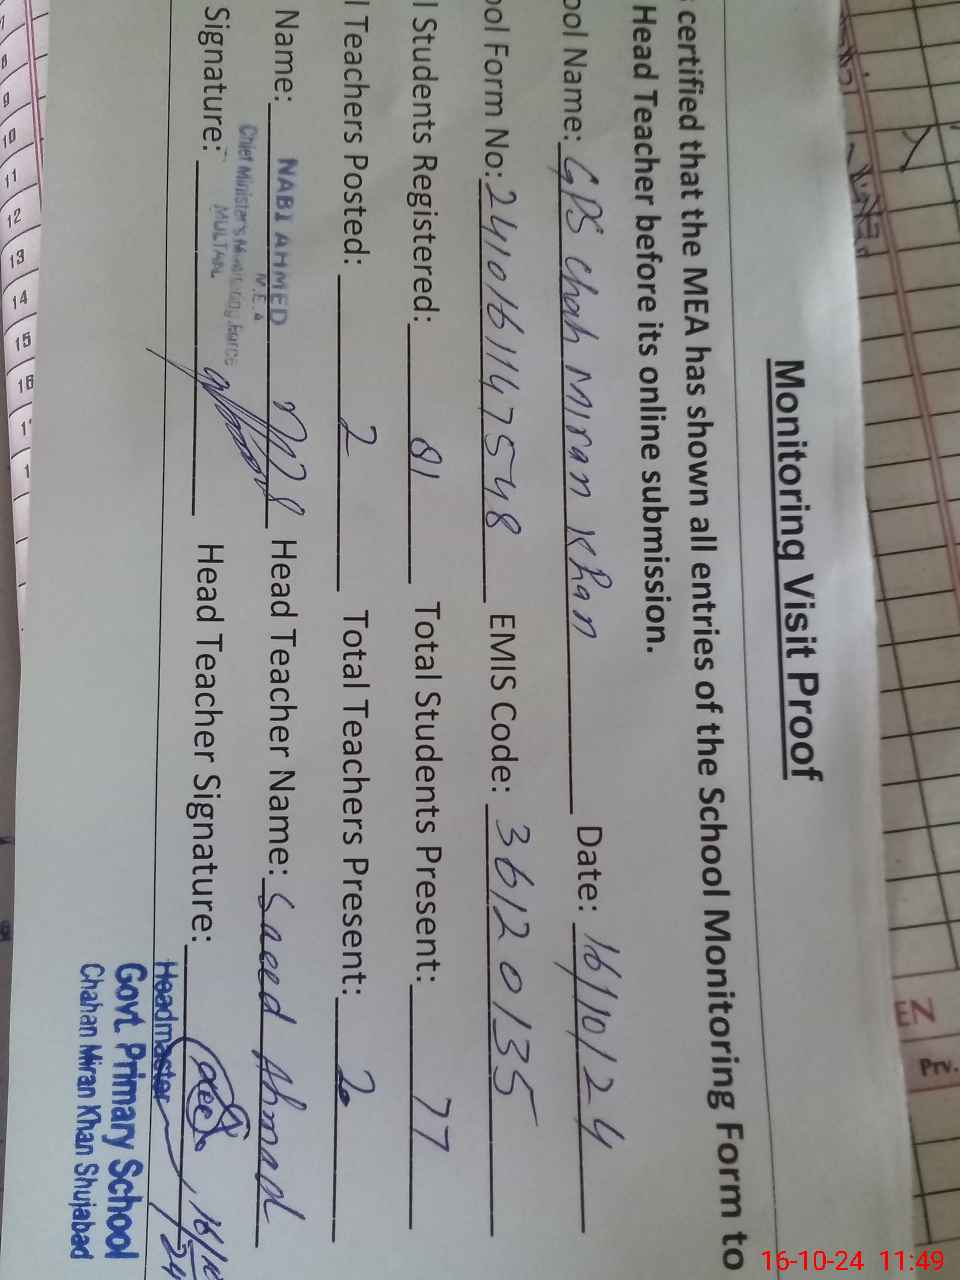 Monitoring Visit Proof
certified that the MEA has shown all entries of the School Monitoring Form to
Head Teacher before its online submission.
ool Name: GPS Chah Miran Khan Date: 16/10/24
ool Form No: 2410161147548 EMIS Code: 36120135
l Students Registered: 81 Total Students Present: 77
l Teachers Posted: 2 Total Teachers Present: 2
Name: NABI AHMED Head Teacher Name: Saeed Ahmad
M.E.A
Chief Minister's Monitoring Force
MULTAN
Signature: Head Teacher Signature:
Headmaster
Govt. Primary School
Chahan Miran Khan Shujabad
EN
Prv.
7
8
9
10
11
12
13
14
15
16
16-10-24 11:49